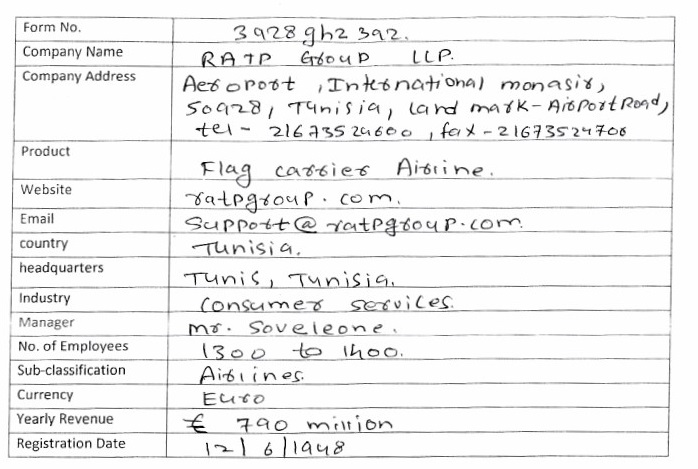 Form No. 3928gh2392.
Company Name RATP Group LLP.
Company Address Aeroport, International monasir,
50928, Tunisia, land mark-Airport Road,
tel- 21673524600, fax-21673524706
Product Flag carrier Airline.
Website ratpgroup.com.
Email Support@ratpgroup.com.
country Tunisia.
headquarters Tunis, Tunisia.
Industry Consumer services.
Manager mr. Soveleone.
No. of Employees 1300 to 1400.
Sub-classification Airlines.
Currency Euro
Yearly Revenue € 790 million
Registration Date 12/6/1948